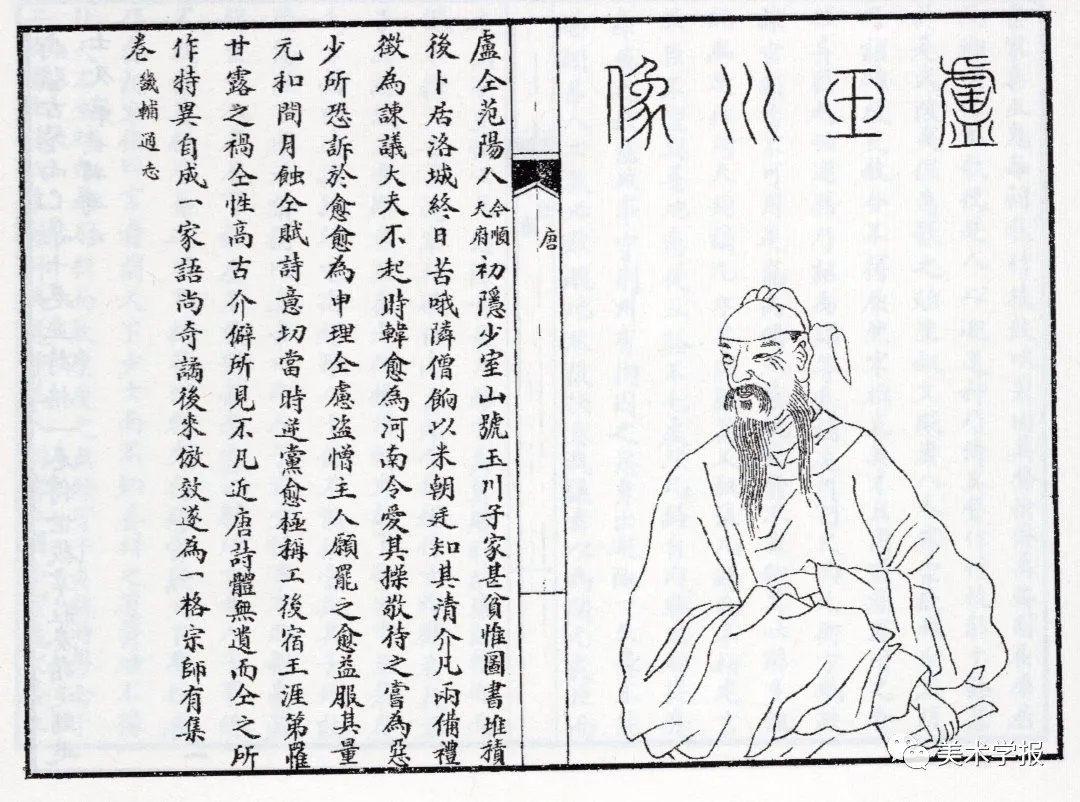 盧玉川像
唐
盧仝范陽人今順天府初隱少室山號玉川子家甚貧惟圖書堆積
後卜居洛城終日苦哦隣僧餉以米朝廷知其清介凡兩備禮
徵為諫議大夫不起時韓愈為河南令愛其操敬待之嘗為惡
少所恐訴於愈愈為申理仝慮盜憎主人願罷之愈益服其量
元和間月蝕仝賦詩意切當時逆黨愈極稱工後宿王涯第罹
甘露之禍仝性高古介僻所見不凡近唐詩體無遺而仝之所
作特異自成一家語尚奇譎後來倣效遂為一格宗師有集
卷畿輔通志
美术学报